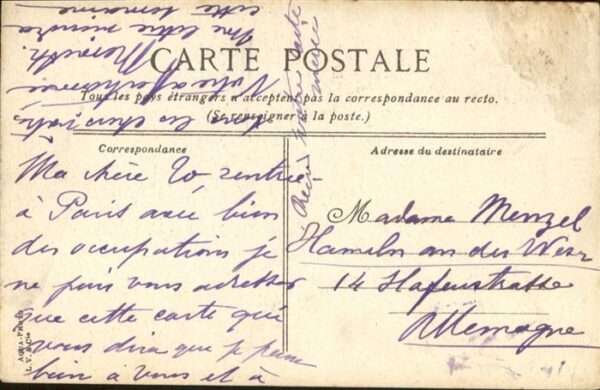 CARTE POSTALE
Tous les pays étrangers n'acceptent pas la correspondance au recto.
(Se renseigner à la poste.)
Correspondance
Adresse du destinataire
Ma chère rentrée
à Paris avec bien
des occupations je
ne puis vous adresser
que cette carte qui
vous dira que je pense
bien à vous et à
tous les chers vôtres
Votre affectionnée
Une lettre viendra
cette semaine
Madame Menzel
Hameln an der Weser
14 Hafenstrasse
Allemagne